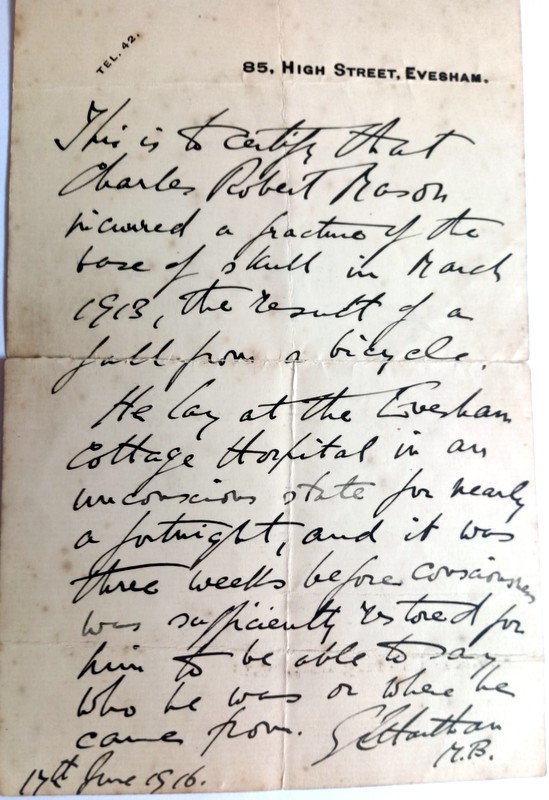 TEL. 42.
85, HIGH STREET, EVESHAM.
This is to certify that
Charles Robert Mason
incurred a fracture of the
base of skull in March
1913, the result of a
fall from a bicycle.
He lay at the Evesham
Cottage Hospital in an
unconscious state for nearly
a fortnight, and it was
three weeks before consciousness
was sufficiently restored for
him to be able to say
who he was or where he
came from.
M.B.
17th June 1916.